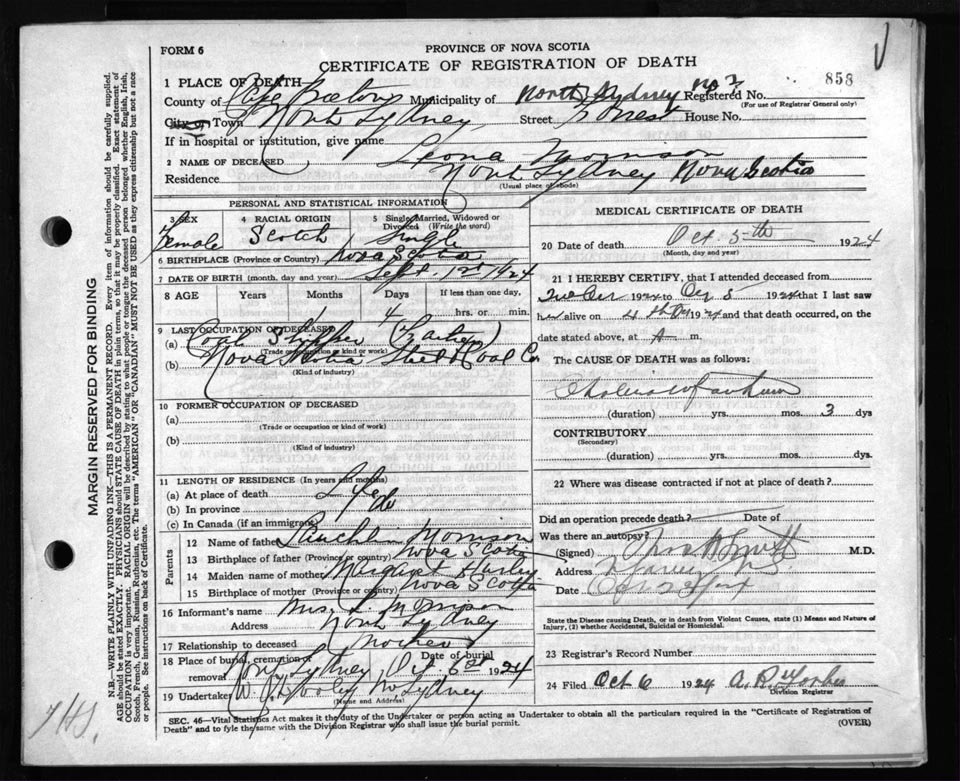 FORM 6
PROVINCE OF NOVA SCOTIA
CERTIFICATE OF REGISTRATION OF DEATH
1 PLACE OF DEATH—
858
County of Cape Breton Municipality of North Sydney Registered No.
(For use of Registrar General only)
City or Town North Sydney Street Forrest House No.
If in hospital or institution, give name
2 NAME OF DECEASED Leona Morrison
Residence North Sydney Nova Scotia
(Usual place of abode)
PERSONAL AND STATISTICAL INFORMATION
3 SEX 4 RACIAL ORIGIN 5 Single, Married, Widowed or Divorced (Write the word)
Female Scotch Single
6 BIRTHPLACE (Province or Country) Nova Scotia
7 DATE OF BIRTH (month, day and year) Sept. 1st 1924
8 AGE Years Months Days If less than one day,
4 hrs. or min.
9 LAST OCCUPATION OF DECEASED
(a) Coal (Father)
(Trade or occupation or kind of work)
(b) Nova Scotia Steel & Coal Co
(Kind of industry)
10 FORMER OCCUPATION OF DECEASED
(a)
(Trade or occupation or kind of work)
(b)
(Kind of industry)
11 LENGTH OF RESIDENCE (In years and months)
(a) At place of death Life
(b) In province do
(c) In Canada (if an immigrant)
Parents
12 Name of father Morrison
13 Birthplace of father (Province or country) Nova Scotia
14 Maiden name of mother Margaret
15 Birthplace of mother (Province or country) Nova Scotia
16 Informant's name Mrs. L. Morrison
Address North Sydney
17 Relationship to deceased Mother
18 Place of burial, cremation or removal North Sydney Date of burial Oct 6 1924
19 Undertaker W. J. Dooley N. Sydney
(Name and Address)
MEDICAL CERTIFICATE OF DEATH
20 Date of death Oct 5th 1924
(Month, day and year)
21 I HEREBY CERTIFY, that I attended deceased from
1924 to Oct 5 1924 that I last saw
her alive on 4th Oct 1924 and that death occurred, on the
date stated above, at A m.
The CAUSE OF DEATH was as follows:
Cholera Infantum
(duration) yrs. mos. 3 dys
CONTRIBUTORY
(Secondary)
(duration) yrs. mos. dys.
22 Where was disease contracted if not at place of death?
Did an operation precede death? Date of
Was there an autopsy?
(Signed) M.D.
Address
Date
State the Disease causing Death, or in death from Violent Causes, state (1) Means and Nature of
Injury, (2) whether Accidental, Suicidal or Homicidal.
23 Registrar's Record Number
24 Filed Oct 6 1924 A. R. Forbes
Division Registrar
SEC. 46—Vital Statistics Act makes it the duty of the Undertaker or person acting as Undertaker to obtain all the particulars required in the "Certificate of Registration of
Death" and to fyle the same with the Division Registrar who shall issue the burial permit. (OVER)
MARGIN RESERVED FOR BINDING
N.B.—WRITE PLAINLY WITH UNFADING INK—THIS IS A PERMANENT RECORD. Every item of information should be carefully supplied.
AGE should be stated EXACTLY. PHYSICIANS should STATE CAUSE OF DEATH in plain terms, so that it may be properly classified. Exact statement of
OCCUPATION is very important. RACIAL ORIGIN will be described by stating to what people or tongue the deceased person belonged whether English, Irish,
Scotch, French, German, Russian, Ruthenian, etc. The terms "AMERICAN" OR "CANADIAN" MUST NOT BE USED as they express citizenship but not a race
or people. See instructions on back of Certificate.